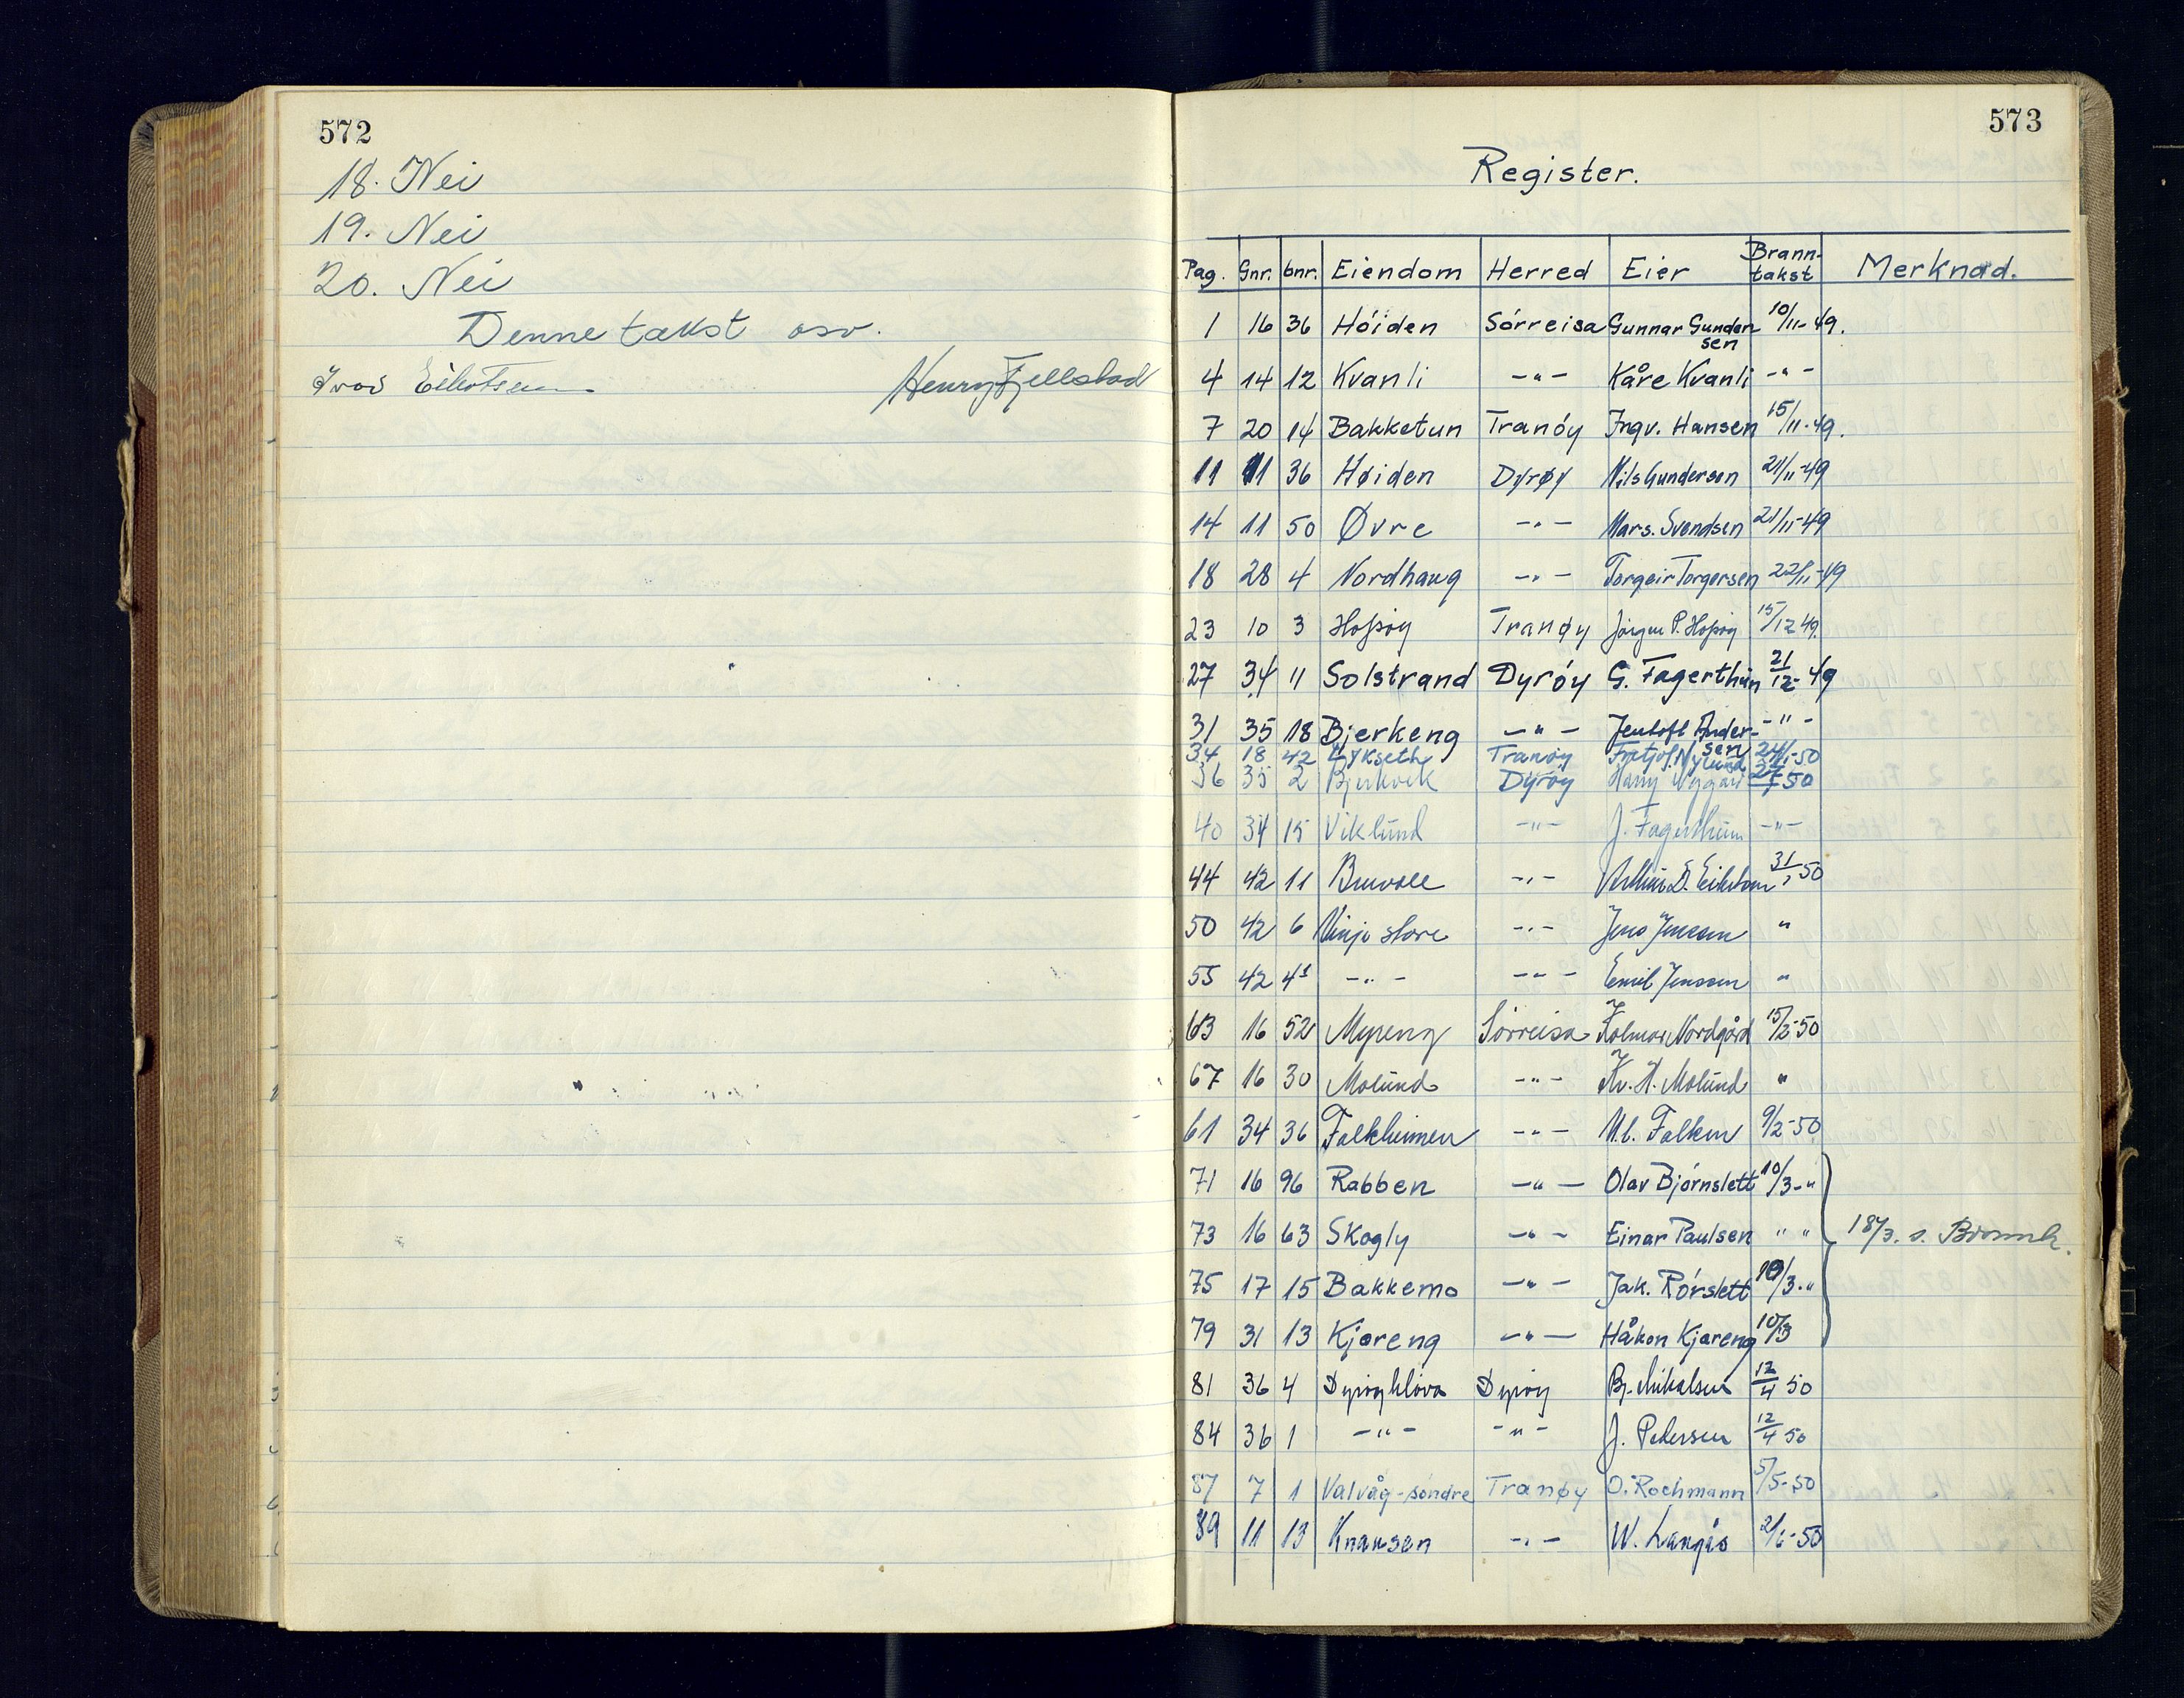 572
18. Nei
19. Nei
20. Nei
Denne takst osv.
Ivar Eilertsen Henry Fjellstad
573
Register.
Pag. Gnr. bnr. Eiendom Herred Eier Brann-takst Merknad.
1 16 36 Höiden Sörreisa Gunnar Gundersen 10/11-49.
4 14 12 Kvanli -"- Kåre Kvanli -"-
7 20 14 Bakketun Tranöy Ingv. Hansen 15/11-49.
11 11 36 Høiden Dyrøy Nils Gundersen 21/11-49
14 11 50 Øvre -"- Mars. Svendsen 21/11-49
18 28 4 Nordhaug -"- Torgeir Torgersen 22/11-49
23 10 3 Hofsöy Tranøy Jörgen P. Hofsöy 15/12 49.
27 34 11 Solstrand Dyröy G. Fagerthun 21/12-49
31 35 18 Bjerkeng -"- Jentoft Andersen -"-
34 18 42 Lykseth Tranöy Fritjof Nylund 24/1-50
36 35 2 Bjerkvik Dyröy Harry Nygård 27/1 50
40 34 15 Viklund -"- J. Fagerthun -"-
44 42 11 Bruvoll -"- Arthur E. 31/1 50
50 42 6 Vinje store -"- Jens Jenssen "
55 42 4¹ -"- -"- Emil Jenssen "
63 16 52 Myreng Sörreisa Holmar Nordgård 15/2-50
67 16 30 Molund -"- Kr. H. Molund "
61 34 36 Falkheimen -"- M. Falken 9/2-50
71 16 96 Rabben -"- Olav Björnslett 10/3-"
73 16 63 Skogly -"- Einar Paulsen " " 18/3. s.
75 17 15 Bakkemo -"- Jak. Rörslett 10/3-"
79 31 13 Kjæreng -"- Håkon Kjæreng 10/3
81 36 4 Dyröyklöva Dyröy Bj. Mikalsen 12/4 50
84 36 1 -"- -"- J. Pedersen 12/4 50
87 7 1 Valvåg-söndre Tranøy O. Rochmann 5/5-50
89 11 13 Knausen -"- W. Langås 2/6-50